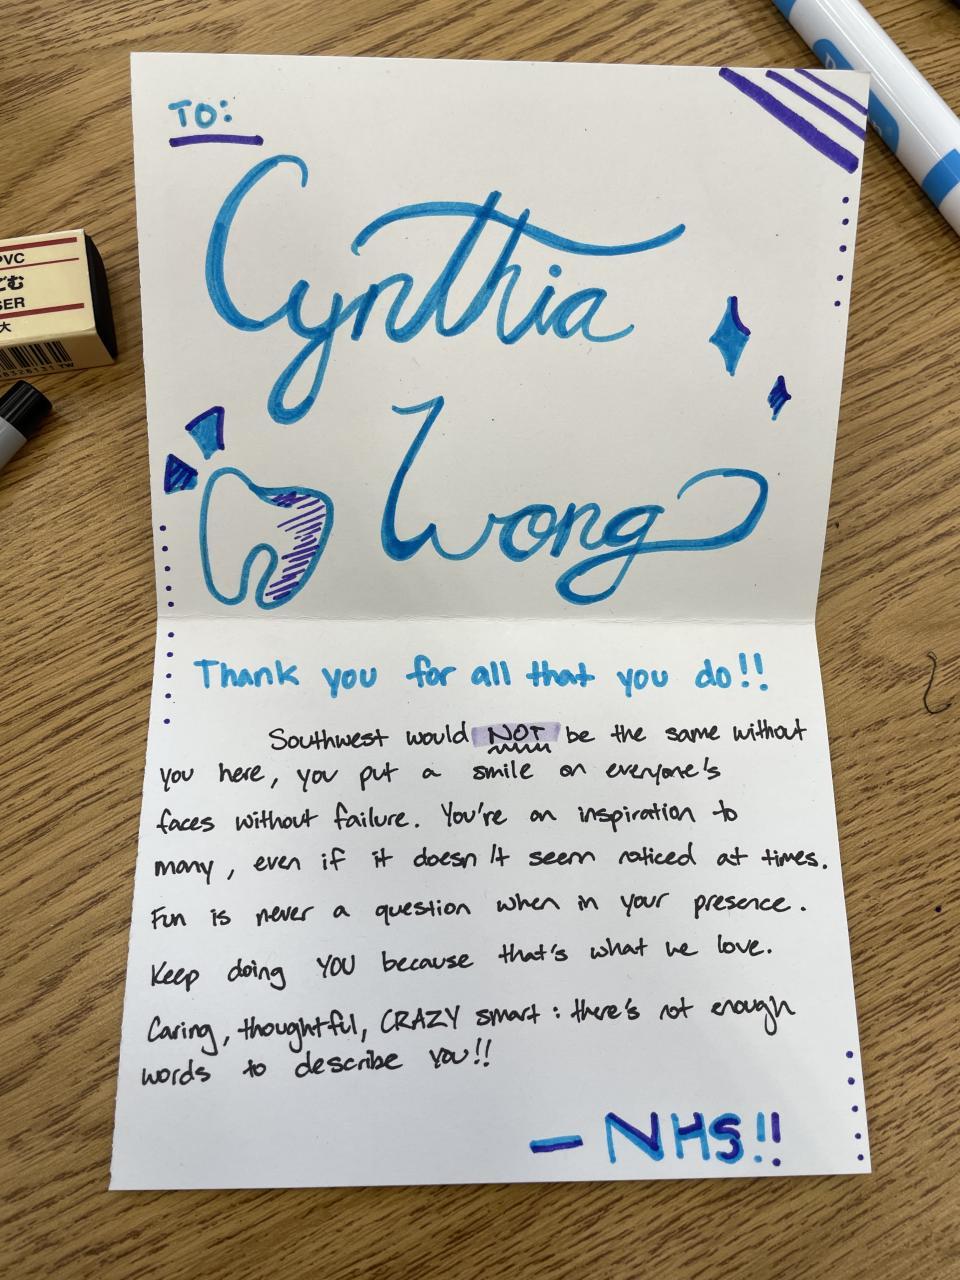 TO:
Cynthia
Wong
PVC
ごむ
SER
大
Thank you for all that you do!!
Southwest would NOT be the same without
you here, you put a smile on everyone's
faces without failure. You're an inspiration to
many, even if it doesn't seem noticed at times.
Fun is never a question when in your presence.
Keep doing YOU because that's what we love.
Caring, thoughtful, CRAZY smart : there's not enough
words to describe you!!
— NHS!!